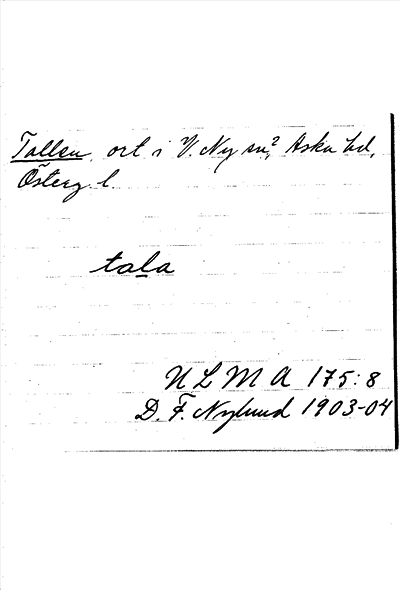 Tallen, ort i V. Ny sn?, Aska hd,
Österg. l.
tala
U L M A 175:8
D. F. Nylund 1903-04